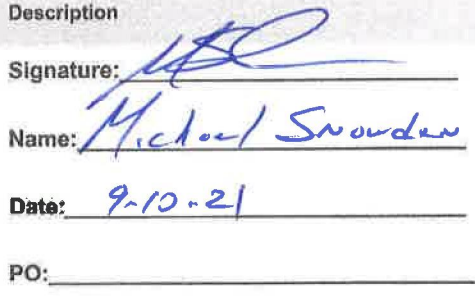 Description
Signature:
Name: Michael Snowden
Date: 9-10-21
PO: